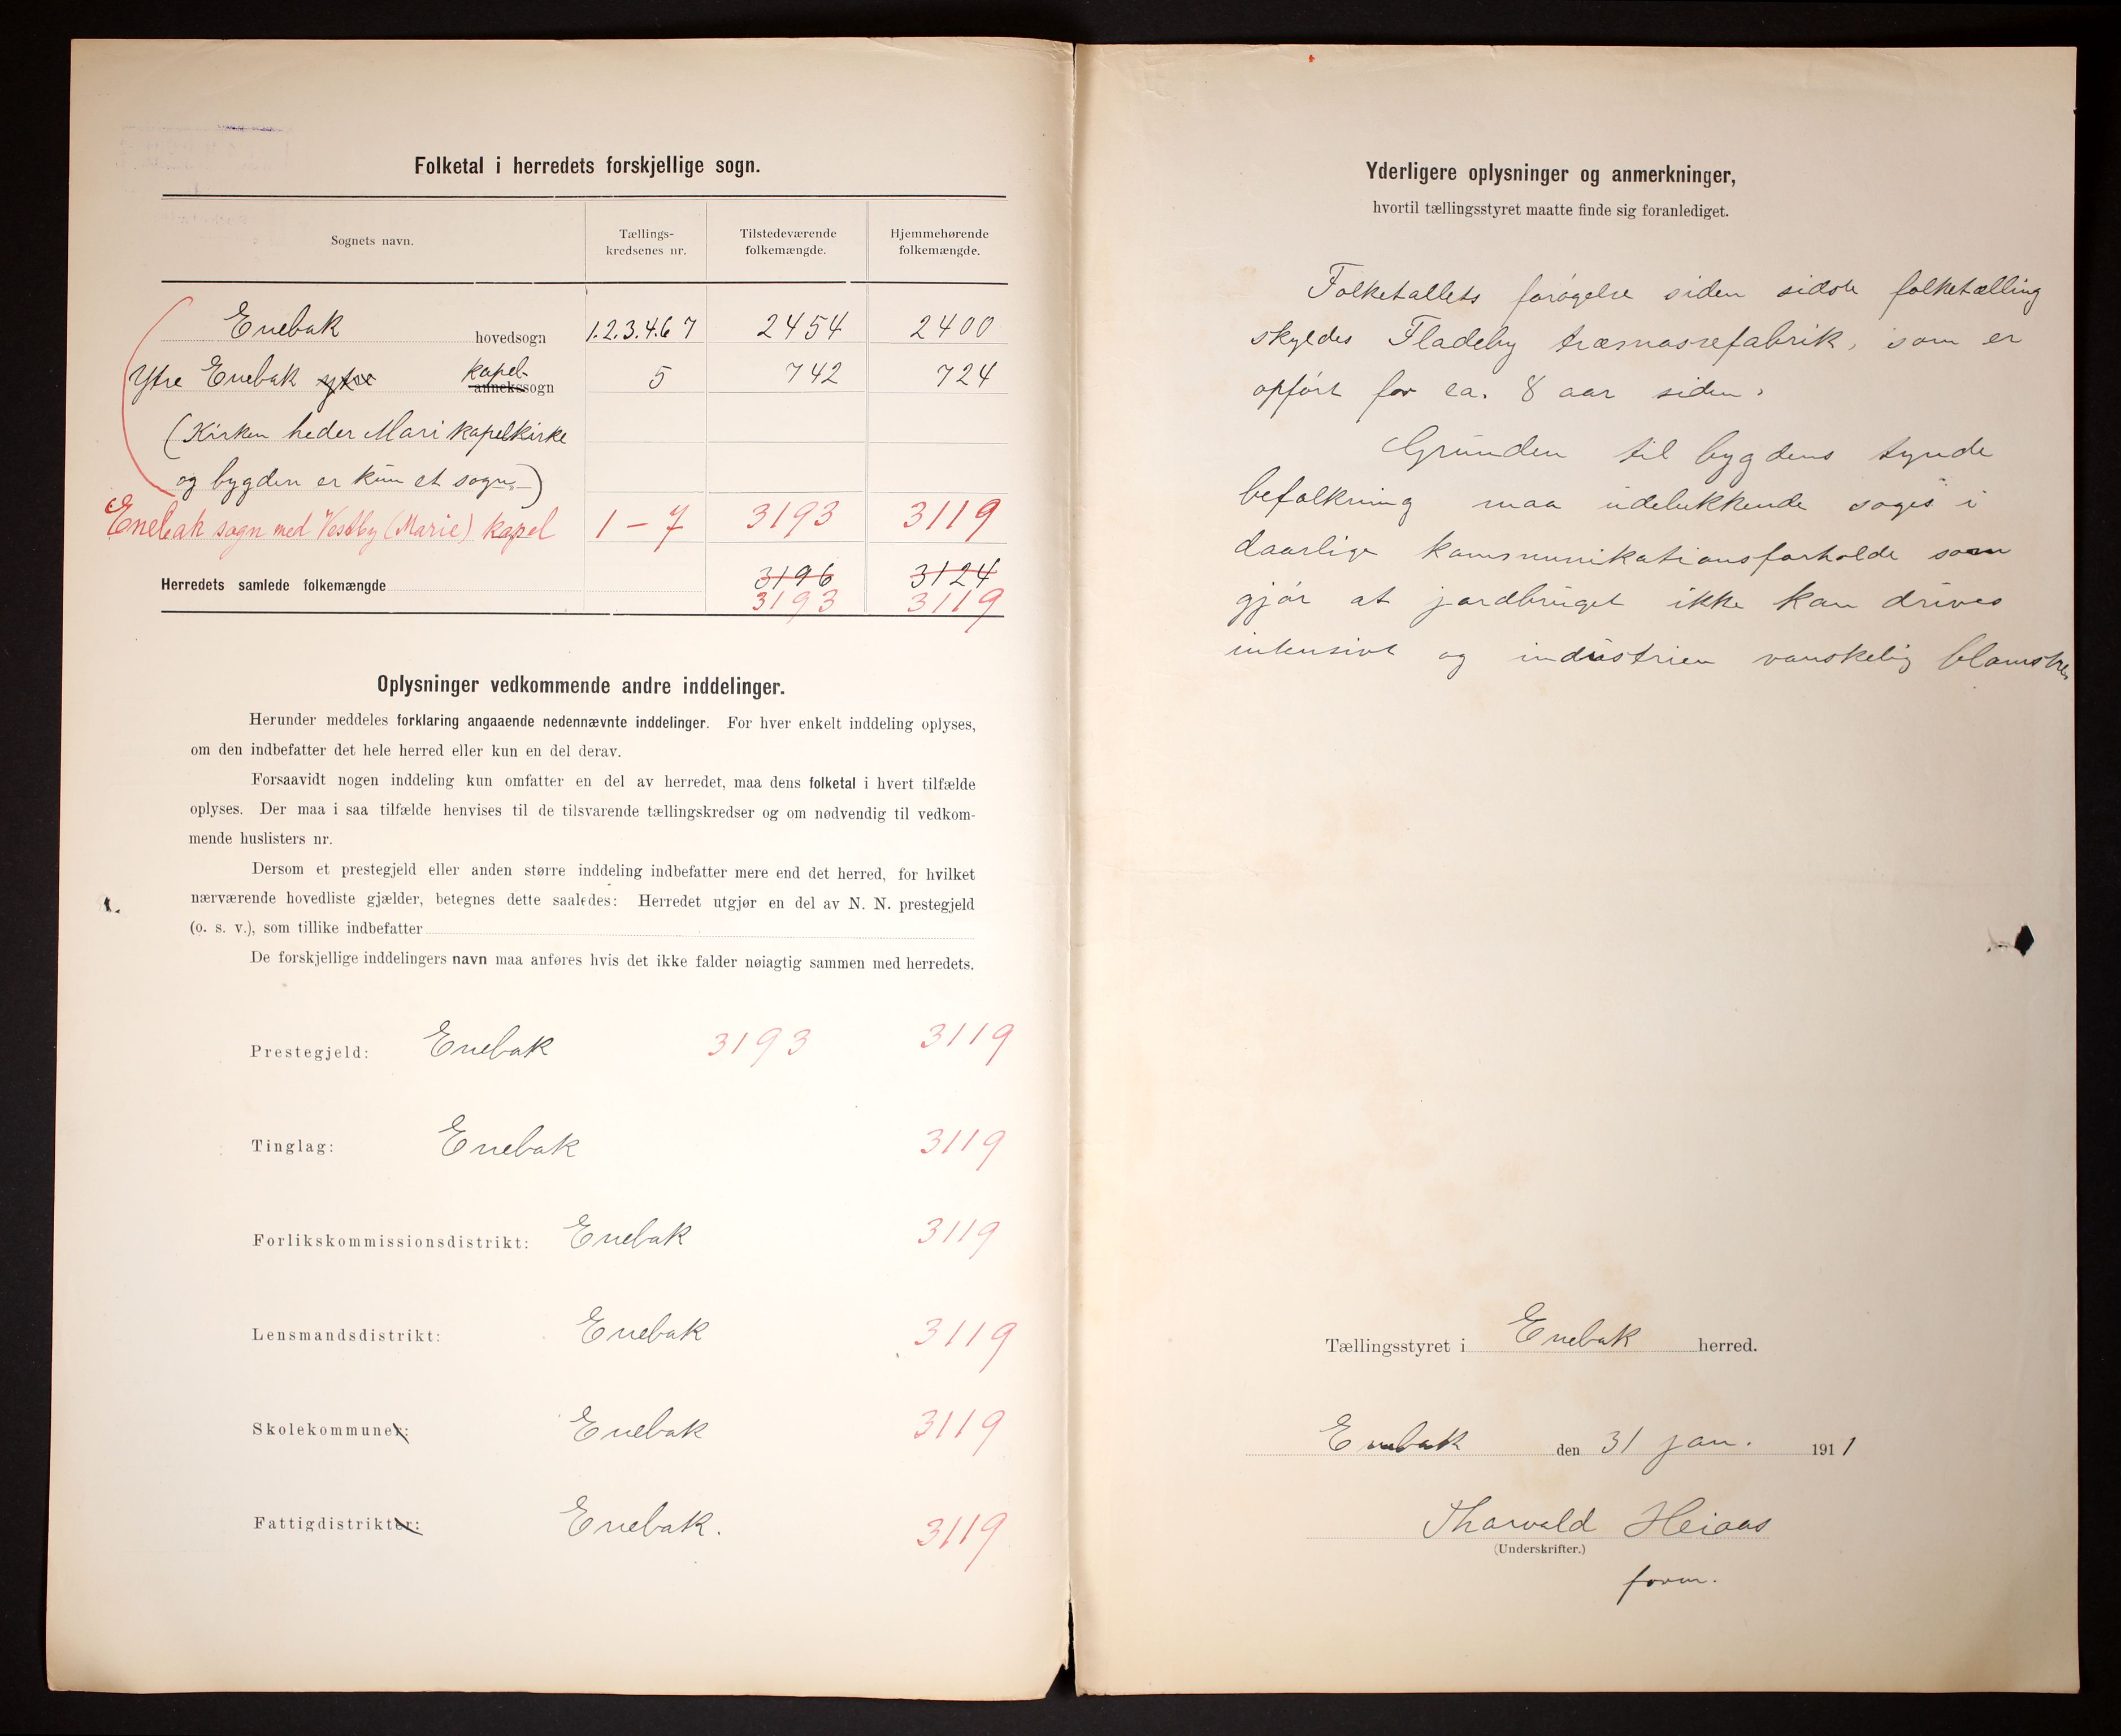 Folketal i herredets forskjellige sogn.
Sognets navn.
Tællings-
kredsenes nr.
Tilstedeværende
folkemængde.
Hjemmehørende
folkemængde.
Enebak hovedsogn 1.2.3.4.6 7 2454 2400
Ytre Enebak ytre kapel- annekssogn 5 742 724
(Kirken heder Mari kapelkirke
og bygden er kun et sogn.)
Enebak sogn med Vestby (Marie) kapel 1-7 3193 3119
Herredets samlede folkemængde 3196 3124
3193 3119
Oplysninger vedkommende andre inddelinger.
Herunder meddeles forklaring angaaende nedennævnte inddelinger. For hver enkelt inddeling oplyses,
om den indbefatter det hele herred eller kun en del derav.
Forsaavidt nogen inddeling kun omfatter en del av herredet, maa dens folketal i hvert tilfælde
oplyses. Der maa i saa tilfælde henvises til de tilsvarende tællingskredser og om nødvendig til vedkom-
mende huslisters nr.
Dersom et prestegjeld eller anden større inddeling indbefatter mere end det herred, for hvilket
nærværende hovedliste gjælder, betegnes dette saaledes: Herredet utgjør en del av N. N. prestegjeld
(o. s. v.), som tillike indbefatter
De forskjellige inddelingers navn maa anføres hvis det ikke falder nøiagtig sammen med herredets.
Prestegjeld: Enebak 3193 3119
Tinglag: Enebak 3119
Forlikskommissionsdistrikt: Enebak 3119
Lensmandsdistrikt: Enebak 3119
Skolekommuner: Enebak 3119
Fattigdistrikter: Enebak. 3119
Yderligere oplysninger og anmerkninger,
hvortil tællingsstyret maatte finde sig foranlediget.
Folketallets forøgelse siden sidste folketælling
skyldes Fladeby træmassefabrik, som er
opført for ca. 8 aar siden.
Grunden til bygdens tynde
befolkning maa udelukkende søges i
daarlige kommunikationsforholde som
gjør at jordbruget ikke kan drives
intensivt og industrien vanskelig blomstre.
Tællingsstyret i Enebak herred.
Enebak den 31 jan. 1911
Thorvald Heiaas
(Underskrifter.)
form.